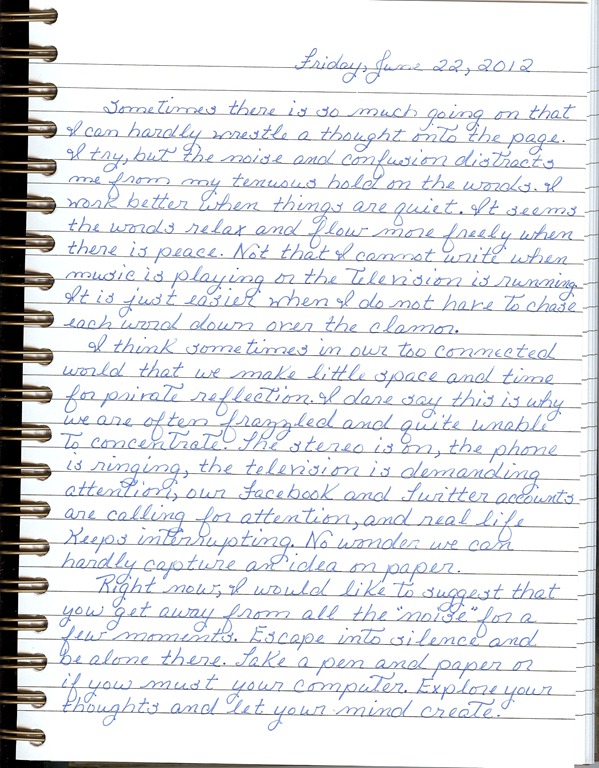 Friday, June 22, 2012
Sometimes there is so much going on that
I can hardly wrestle a thought onto the page.
I try, but the noise and confusion distracts
me from my tenuous hold on the words. I
work better when things are quiet. It seems
the words relax and flow more freely when
there is peace. Not that I cannot write when
music is playing or the television is running.
It is just easier when I do not have to chase
each word down over the clamor.
I think sometimes in our too connected
world that we make little space and time
for private reflection. I dare say this is why
we are often frazzled and quite unable
to concentrate. The stereo is on, the phone
is ringing, the television is demanding
attention, our Facebook and Twitter accounts
are calling for attention, and real life
keeps interrupting. No wonder we can
hardly capture an idea on paper.
Right now, I would like to suggest that
you get away from all the "noise" for a
few moments. Escape into silence and
be alone there. Take a pen and paper or
if you must your computer. Explore your
thoughts and let your mind create.